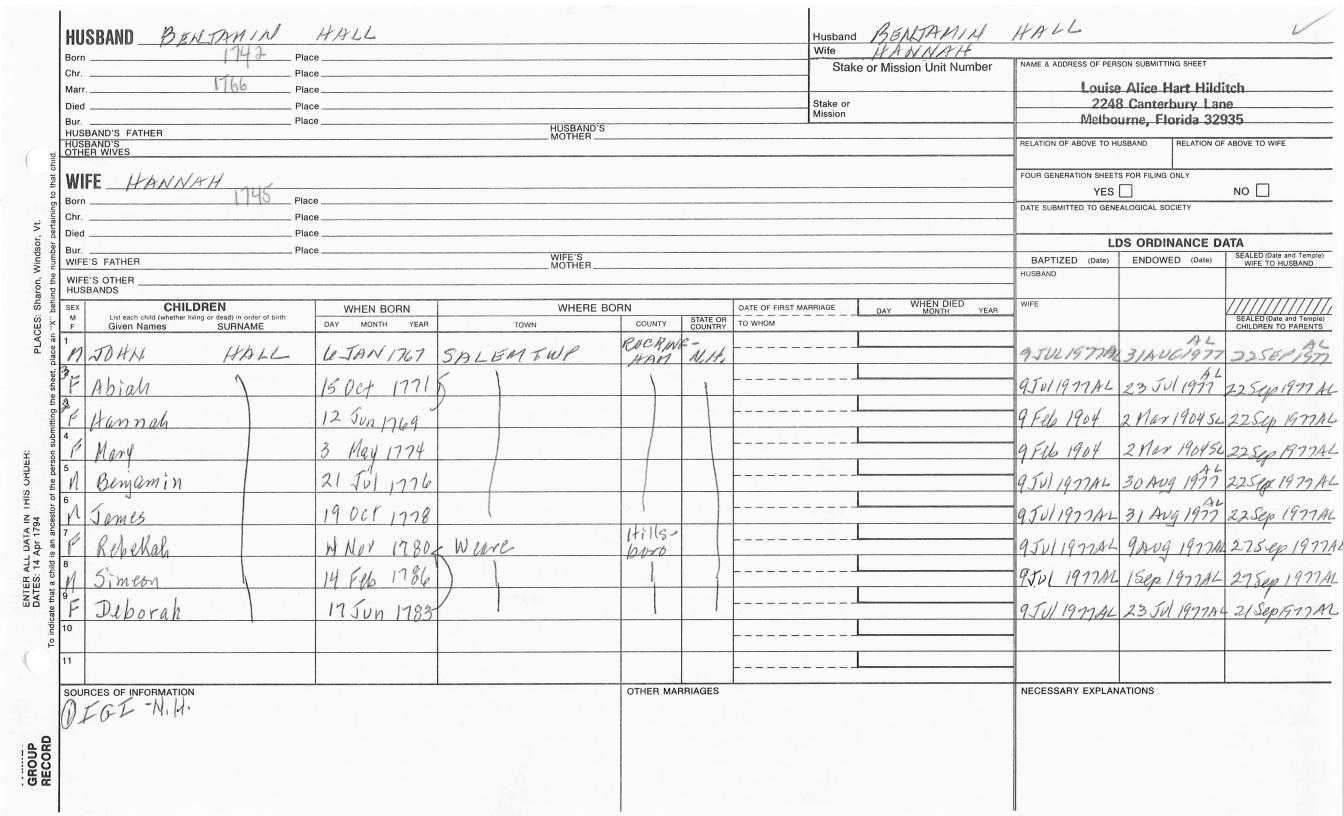 HUSBAND BENJAMIN HALL
Born 1742 Place
Chr. Place
Marr. 1766 Place
Died Place
Bur. Place
HUSBAND'S FATHER HUSBAND'S MOTHER
HUSBAND'S OTHER WIVES
Husband BENJAMIN HALL
Wife HANNAH
Stake or Mission Unit Number
Stake or Mission
NAME & ADDRESS OF PERSON SUBMITTING SHEET
Louise Alice Hart Hilditch
2248 Canterbury Lane
Melbourne, Florida 32935
RELATION OF ABOVE TO HUSBAND RELATION OF ABOVE TO WIFE
FOUR GENERATION SHEETS FOR FILING ONLY
YES NO
DATE SUBMITTED TO GENEALOGICAL SOCIETY
WIFE HANNAH
Born 1745 Place
Chr. Place
Died Place
Bur. Place
WIFE'S FATHER WIFE'S MOTHER
WIFE'S OTHER HUSBANDS
LDS ORDINANCE DATA
BAPTIZED (Date) ENDOWED (Date) SEALED (Date and Temple) WIFE TO HUSBAND
HUSBAND
WIFE
SEALED (Date and Temple) CHILDREN TO PARENTS
SEX M F CHILDREN WHEN BORN WHERE BORN DATE OF FIRST MARRIAGE WHEN DIED
List each child (whether living or dead) in order of birth
Given Names SURNAME DAY MONTH YEAR TOWN COUNTY STATE OR COUNTRY TO WHOM DAY MONTH YEAR
1 M JOHN HALL 6 JAN 1767 SALEM TWP ROCKING-HAM N.H. 9 JUL 1977AL 31 AUG 1977 AL 22 SEP 1977 AL
3 F Abiah 15 Oct 1771 9 Jul 1977AL 23 Jul 1977 AL 22 Sep 1977AL
2 F Hannah 12 Jun 1769 9 Feb 1904 2 Mar 1904 SL 22 Sep 1977AL
4 F Mary 3 May 1774 9 Feb 1904 2 Mar 1904 SL 22 Sep 1977AL
5 M Benjamin 21 Jul 1776 9 Jul 1977AL 30 Aug 1977 AL 22 Sep 1977AL
6 M James 19 Oct 1778 9 Jul 1977AL 31 Aug 1977 AL 22 Sep 1977AL
7 F Rebekah Nov 1780 Weare Hills-boro 9 Jul 1977AL 9 Aug 1977AL 27 Sep 1977AL
8 M Simeon 14 Feb 1786 9 Jul 1977AL 1 Sep 1977AL 27 Sep 1977AL
9 F Deborah 17 Jun 1783 9 Jul 1977AL 23 Jul 1977AL 21 Sep 1977AL
10
11
SOURCES OF INFORMATION OTHER MARRIAGES NECESSARY EXPLANATIONS
① IGI - N.H.
PLACES: Sharon, Windsor, Vt.
ENTER ALL DATA IN THIS ORDER:
DATES: 14 Apr 1794
To indicate that a child is an ancestor of the person submitting the sheet, place an "X" behind the number pertaining to that child.
GROUP
RECORD